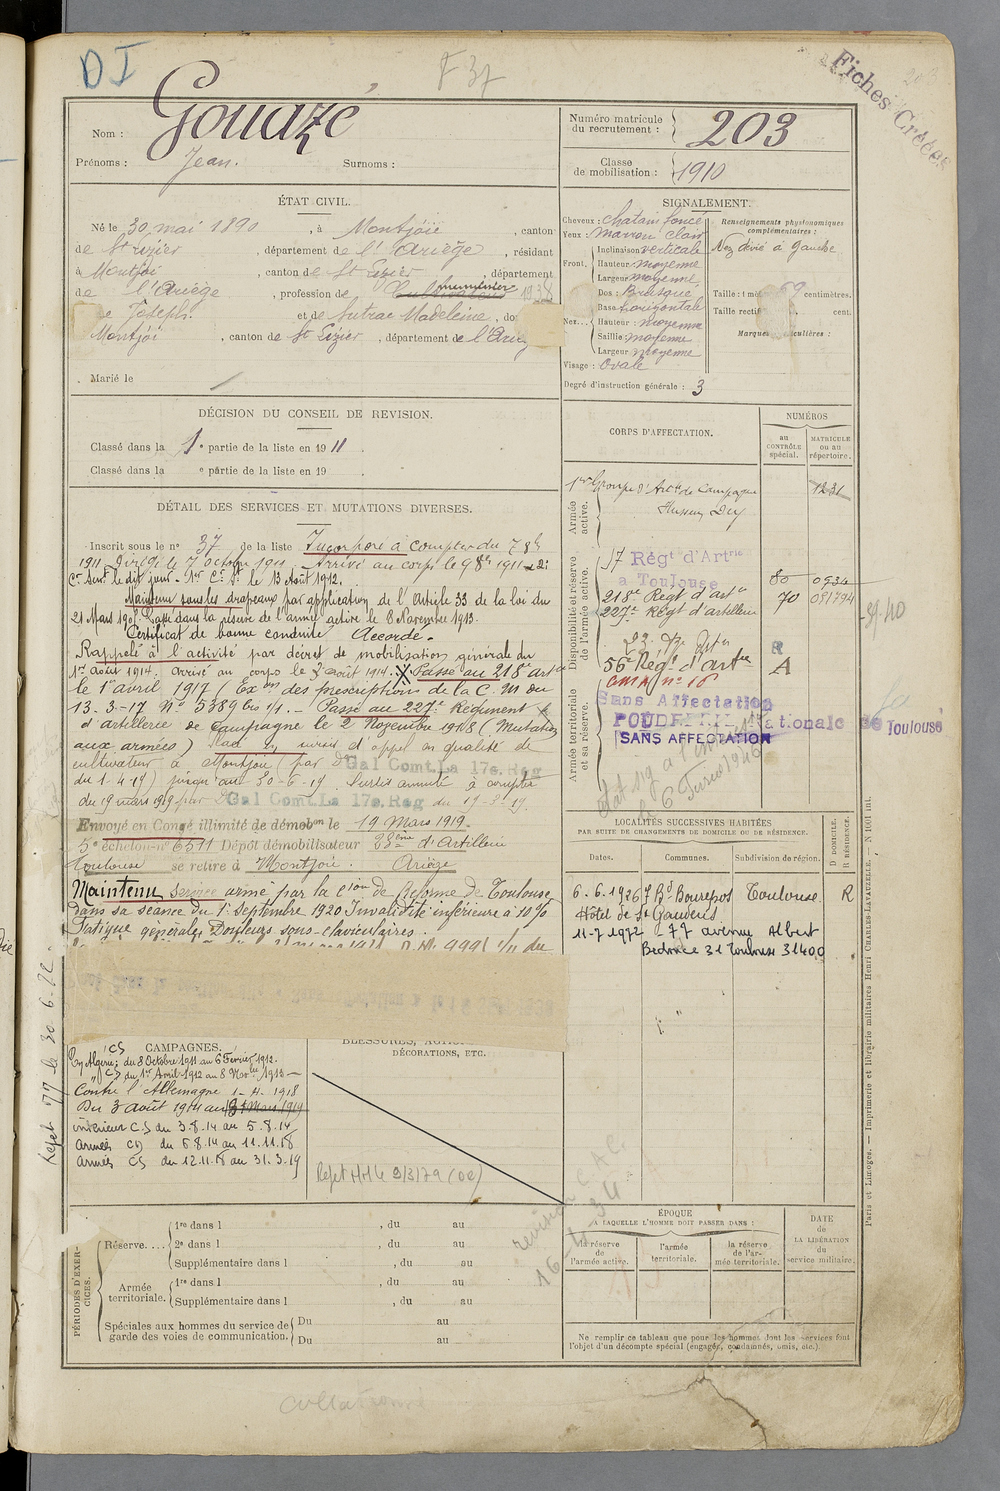 D I
F 37
Fiches Créées
203
Nom : Gouazé
Prénoms : Jean. Surnoms :
Numéro matricule du recrutement : 203
Classe de mobilisation : 1910
ÉTAT CIVIL.
Né le 30 mai 1890, à Montjoie, canton
de St Lizier, département de l'Ariège, résidant
à Montjoi, canton de St Lizier, département
de l'Ariège, profession de Cultivateur 1938
de Joseph et de Autrac Madeleine, do
Montjoi, canton de St Lizier, département de l'Arièg
Marié le
SIGNALEMENT.
Cheveux : chatain foncé
Yeux : marron clair
Front, Inclinaison verticale
Hauteur moyenne
Largeur moyenne
Nez... Dos : Brusque
Base horizontale
Hauteur : moyenne
Saillie moyenne
Largeur moyenne
Visage : Ovale
Renseignements physionomiques complémentaires :
Nez dévié à gauche
Taille : 1 mèt 69 centimètres.
Taille rectif cent.
Marques culières :
Degré d'instruction générale : 3
DÉCISION DU CONSEIL DE REVISION.
Classé dans la 1e partie de la liste en 1911.
Classé dans la e partie de la liste en 19 .
DÉTAIL DES SERVICES ET MUTATIONS DIVERSES.
Inscrit sous le no 37 de la liste Incorporé à compter du 7 8bre
1911 Dirigé le 7 octobre 1911. Arrivé au corps le 9 8bre 1911 2e
Cr Servt le dit jour. 1er Cr St le 13 Août 1912.
Maintenu sous les drapeaux par application de l'Article 33 de la loi du
21 Mars 1905 Passé dans la réserve de l'armée active le 8 Novembre 1913.
Certificat de bonne conduite Accordé.
Rappelé à l'activité par décret de mobilisation générale du
1er août 1914. arrivé au corps le 3 août 1914. Passé au 218e arte
le 1er avril 1917 (Exon des prescriptions de la C. M du
13-3-17 No 5389 bis 1/1. - Passé au 227e Régiment
d'artillerie de campagne le 2 Novembre 1918 (Mutation
aux armées) sursis d'appel en qualité de
cultivateur à Montjou (par Dn Gal Comt. La 17e. Reg
du 1-4-19) jusqu'au 30-6-19. Sursis annulé à compter
du 19 mars 1919 par Dn Gal Comt. La 17e. Reg du 19-8-19.
Envoyé en Congé illimité de démobon le 19 Mars 1919.
5e échelon no 6511 Dépôt démobilisateur 23ème d'Artillerie
Toulouse se retire à Montjoie. Ariège
Maintenu service armé par la Cion de Réforme de Toulouse
dans sa séance du 1er septembre 1920 Invalidité inférieure à 10 %
Fatigue générale Douleurs sous-claviculaires.
CORPS D'AFFECTATION.
NUMÉROS
au CONTRÔLE spécial.
MATRICULE ou au répertoire.
Armée active.
1er Groupe d'Artie de Campagne 1231
Hussein Dey
Disponibilité et réserve de l'armée active.
57 Régt d'Artrie
a Toulouse 80 0934
218e Régt d'arte 70 081794
227e Régt d'artillerie
23e Rgt Artie
56e Régt d'artie A
CMA no 16
39-40
Armée territoriale et sa réserve.
Sans Affectation
POUDRERIE Nationale de Toulouse
SANS AFFECTATION
le 6 Février 1946
LOCALITÉS SUCCESSIVES HABITÉES
PAR SUITE DE CHANGEMENTS DE DOMICILE OU DE RÉSIDENCE.
D DOMICILE. R RÉSIDENCE.
Dates. Communes. Subdivision de région.
6-6-1926 7 Bd Bourepos Toulouse R
Hôtel de St Gaudens
11-7-1972 77 avenue Albert
Bedouce 31 Toulouse 31400
CAMPAGNES.
En Algérie; CS du 8 Octobre 1911 au 6 Février 1912.
" CS du 1er Avril 1912 au 8 Novre 1913
Contre l'Allemagne 1-4-1918
Du 3 août 1914 au 31 Mars 1919
intérieur C.S du 3.8.14 au 5.8.14
armées CD du 6.8.14 au 11.11.18
armées CS du 12.11.18 au 31.3.19
BLESSURES, ACTIO
DÉCORATIONS, ETC.
Rejet 77 le 30-6-72
Rejet HH le 9/3/79 (oe)
revision C.A.C.
16-4-34
PÉRIODES D'EXERCICES.
Réserve.... 1re dans l , du au
2e dans l , du au
Supplémentaire dans l , du au
Armée territoriale. 1re dans l , du au
Supplémentaire dans l , du au
Spéciales aux hommes du service de garde des voies de communication. Du au
Du au
ÉPOQUE
A LAQUELLE L'HOMME DOIT PASSER DANS :
la réserve de l'armée active.
l'armée territoriale.
la réserve de l'armée territoriale.
DATE DE LA LIBÉRATION du service militaire.
Ne remplir ce tableau que pour les hommes dont les services font
l'objet d'un décompte spécial (engagés, condamnés, omis, etc.).
Paris et Limoges. — Imprimerie et librairie militaires Henri CHARLES-LAVAUZELLE. — N 1001 int.